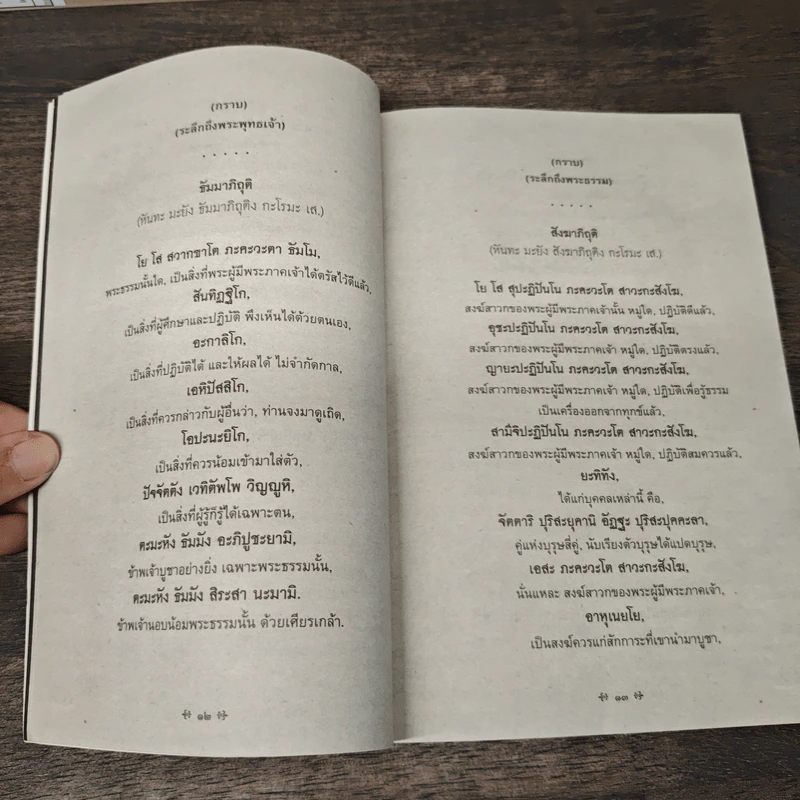 (กราบ)
(ระลึกถึงพระพุทธเจ้า)
.....
ธัมมาภิถุติ
(หันทะ มะยัง ธัมมาภิถุติง กะโรมะ เส.)
โย โส สวากขาโต ภะคะวะตา ธัมโม,
พระธรรมนั้นใด, เป็นสิ่งที่พระผู้มีพระภาคเจ้าได้ตรัสไว้ดีแล้ว,
สันทิฏฐิโก,
เป็นสิ่งที่ผู้ศึกษาและปฏิบัติ พึงเห็นได้ด้วยตนเอง,
อะกาลิโก,
เป็นสิ่งที่ปฏิบัติได้ และให้ผลได้ ไม่จำกัดกาล,
เอหิปัสสิโก,
เป็นสิ่งที่ควรกล่าวกับผู้อื่นว่า, ท่านจงมาดูเถิด,
โอปะนะยิโก,
เป็นสิ่งที่ควรน้อมเข้ามาใส่ตัว,
ปัจจัตตัง เวทิตัพโพ วิญญูหิ,
เป็นสิ่งที่ผู้รู้ก็รู้ได้เฉพาะตน,
ตะมะหัง ธัมมัง อะภิปูชะยามิ,
ข้าพเจ้าบูชาอย่างยิ่ง เฉพาะพระธรรมนั้น,
ตะมะหัง ธัมมัง สิระสา นะมามิ.
ข้าพเจ้านอบน้อมพระธรรมนั้น ด้วยเศียรเกล้า.
๑๒
(กราบ)
(ระลึกถึงพระธรรม)
.....
สังฆาภิถุติ
(หันทะ มะยัง สังฆาภิถุติง กะโรมะ เส.)
โย โส สุปะฏิปันโน ภะคะวะโต สาวะกะสังโฆ,
สงฆ์สาวกของพระผู้มีพระภาคเจ้านั้น หมู่ใด, ปฏิบัติดีแล้ว,
อุชุปะฏิปันโน ภะคะวะโต สาวะกะสังโฆ,
สงฆ์สาวกของพระผู้มีพระภาคเจ้า หมู่ใด, ปฏิบัติตรงแล้ว,
ญายะปะฏิปันโน ภะคะวะโต สาวะกะสังโฆ,
สงฆ์สาวกของพระผู้มีพระภาคเจ้า หมู่ใด, ปฏิบัติเพื่อรู้ธรรม
เป็นเครื่องออกจากทุกข์แล้ว,
สามีจิปะฏิปันโน ภะคะวะโต สาวะกะสังโฆ,
สงฆ์สาวกของพระผู้มีพระภาคเจ้า หมู่ใด, ปฏิบัติสมควรแล้ว,
ยะทิทัง,
ได้แก่บุคคลเหล่านี้ คือ,
จัตตาริ ปุริสะยุคานิ อัฏฐะ ปุริสะปุคคะลา,
คู่แห่งบุรุษสี่คู่, นับเรียงตัวบุรุษได้แปดบุรุษ,
เอสะ ภะคะวะโต สาวะกะสังโฆ,
นั่นแหละ สงฆ์สาวกของพระผู้มีพระภาคเจ้า,
อาหุเนยโย,
เป็นสงฆ์ควรแก่สักการะที่เขานำมาบูชา,
๑๓